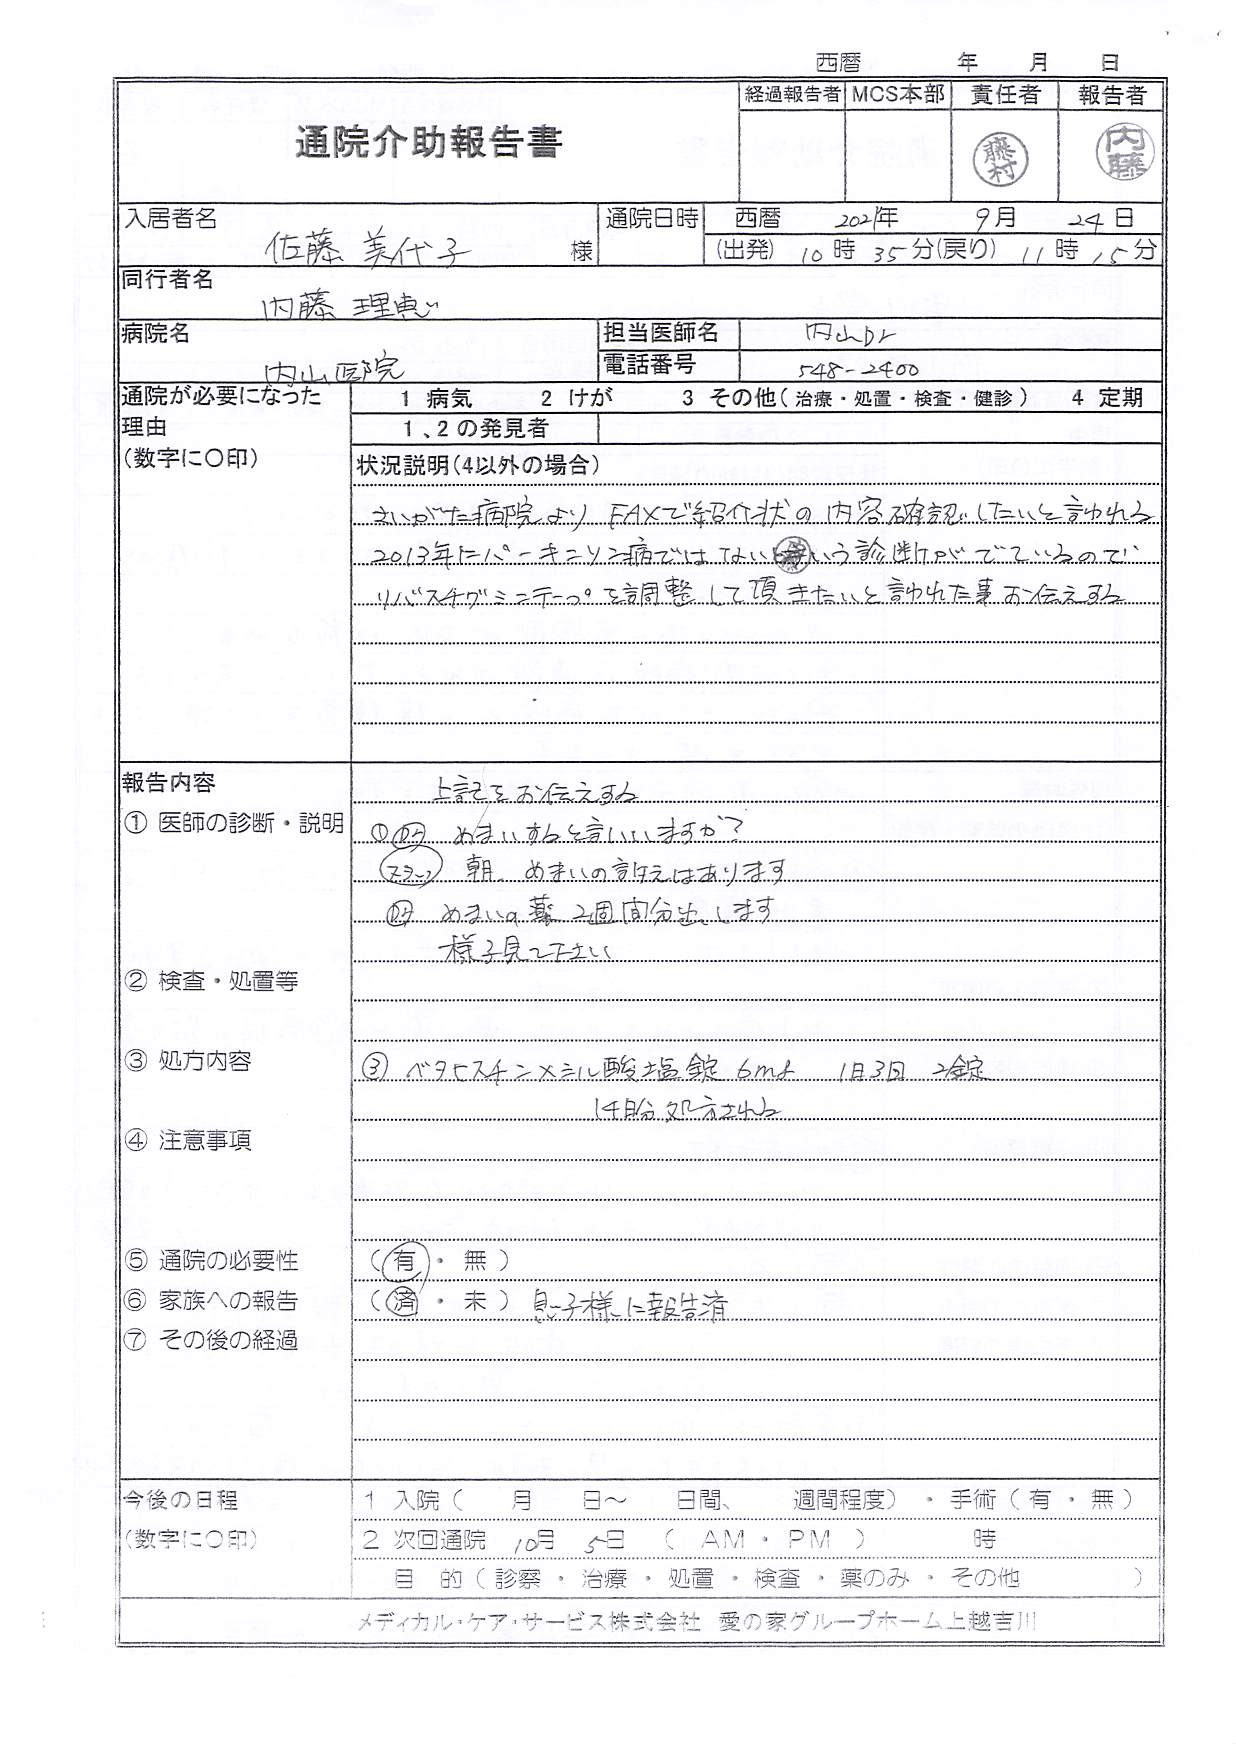 西暦 年 月 日
通院介助報告書
経過報告者 MCS本部 責任者 報告者
藤村 内藤
入居者名 佐藤 美代子 様
通院日時 西暦 2021年 9月 24日
(出発) 10時 35分(戻り) 11時 15分
同行者名
内藤 理恵
病院名
内山医院
担当医師名 内山Dr
電話番号 548-2400
通院が必要になった理由
(数字に〇印)
1 病気 2 けが 3 その他(治療・処置・検査・健診) 4 定期
1、2の発見者
状況説明(4以外の場合)
さいがた病院より FAXで紹介状の内容確認したいと言われる
2013年にパーキンソン病ではないという診断がでているので
リバスチグミンテープを調整して頂きたいと言われた事お伝えする
報告内容
上記をお伝えする
① 医師の診断・説明
① Dr めまいすると言いいますか?
スタッフ 朝 めまいの訴えはあります
Dr めまいの薬 2週間分出します
様子見て下さい
② 検査・処置等
③ 処方内容
③ ベタヒスチンメシル酸塩錠 6mg 1日3回 2錠
14日分処方される
④ 注意事項
⑤ 通院の必要性 (有・無)
⑥ 家族への報告 (済・未) 息子様に報告済
⑦ その後の経過
今後の日程
(数字に〇印)
1 入院( 月 日～ 日間、 週間程度)・手術(有・無)
2 次回通院 10月 5日 ( AM・PM ) 時
目 的(診察・治療・処置・検査・薬のみ・その他 )
メディカル・ケア・サービス株式会社 愛の家グループホーム上越吉川